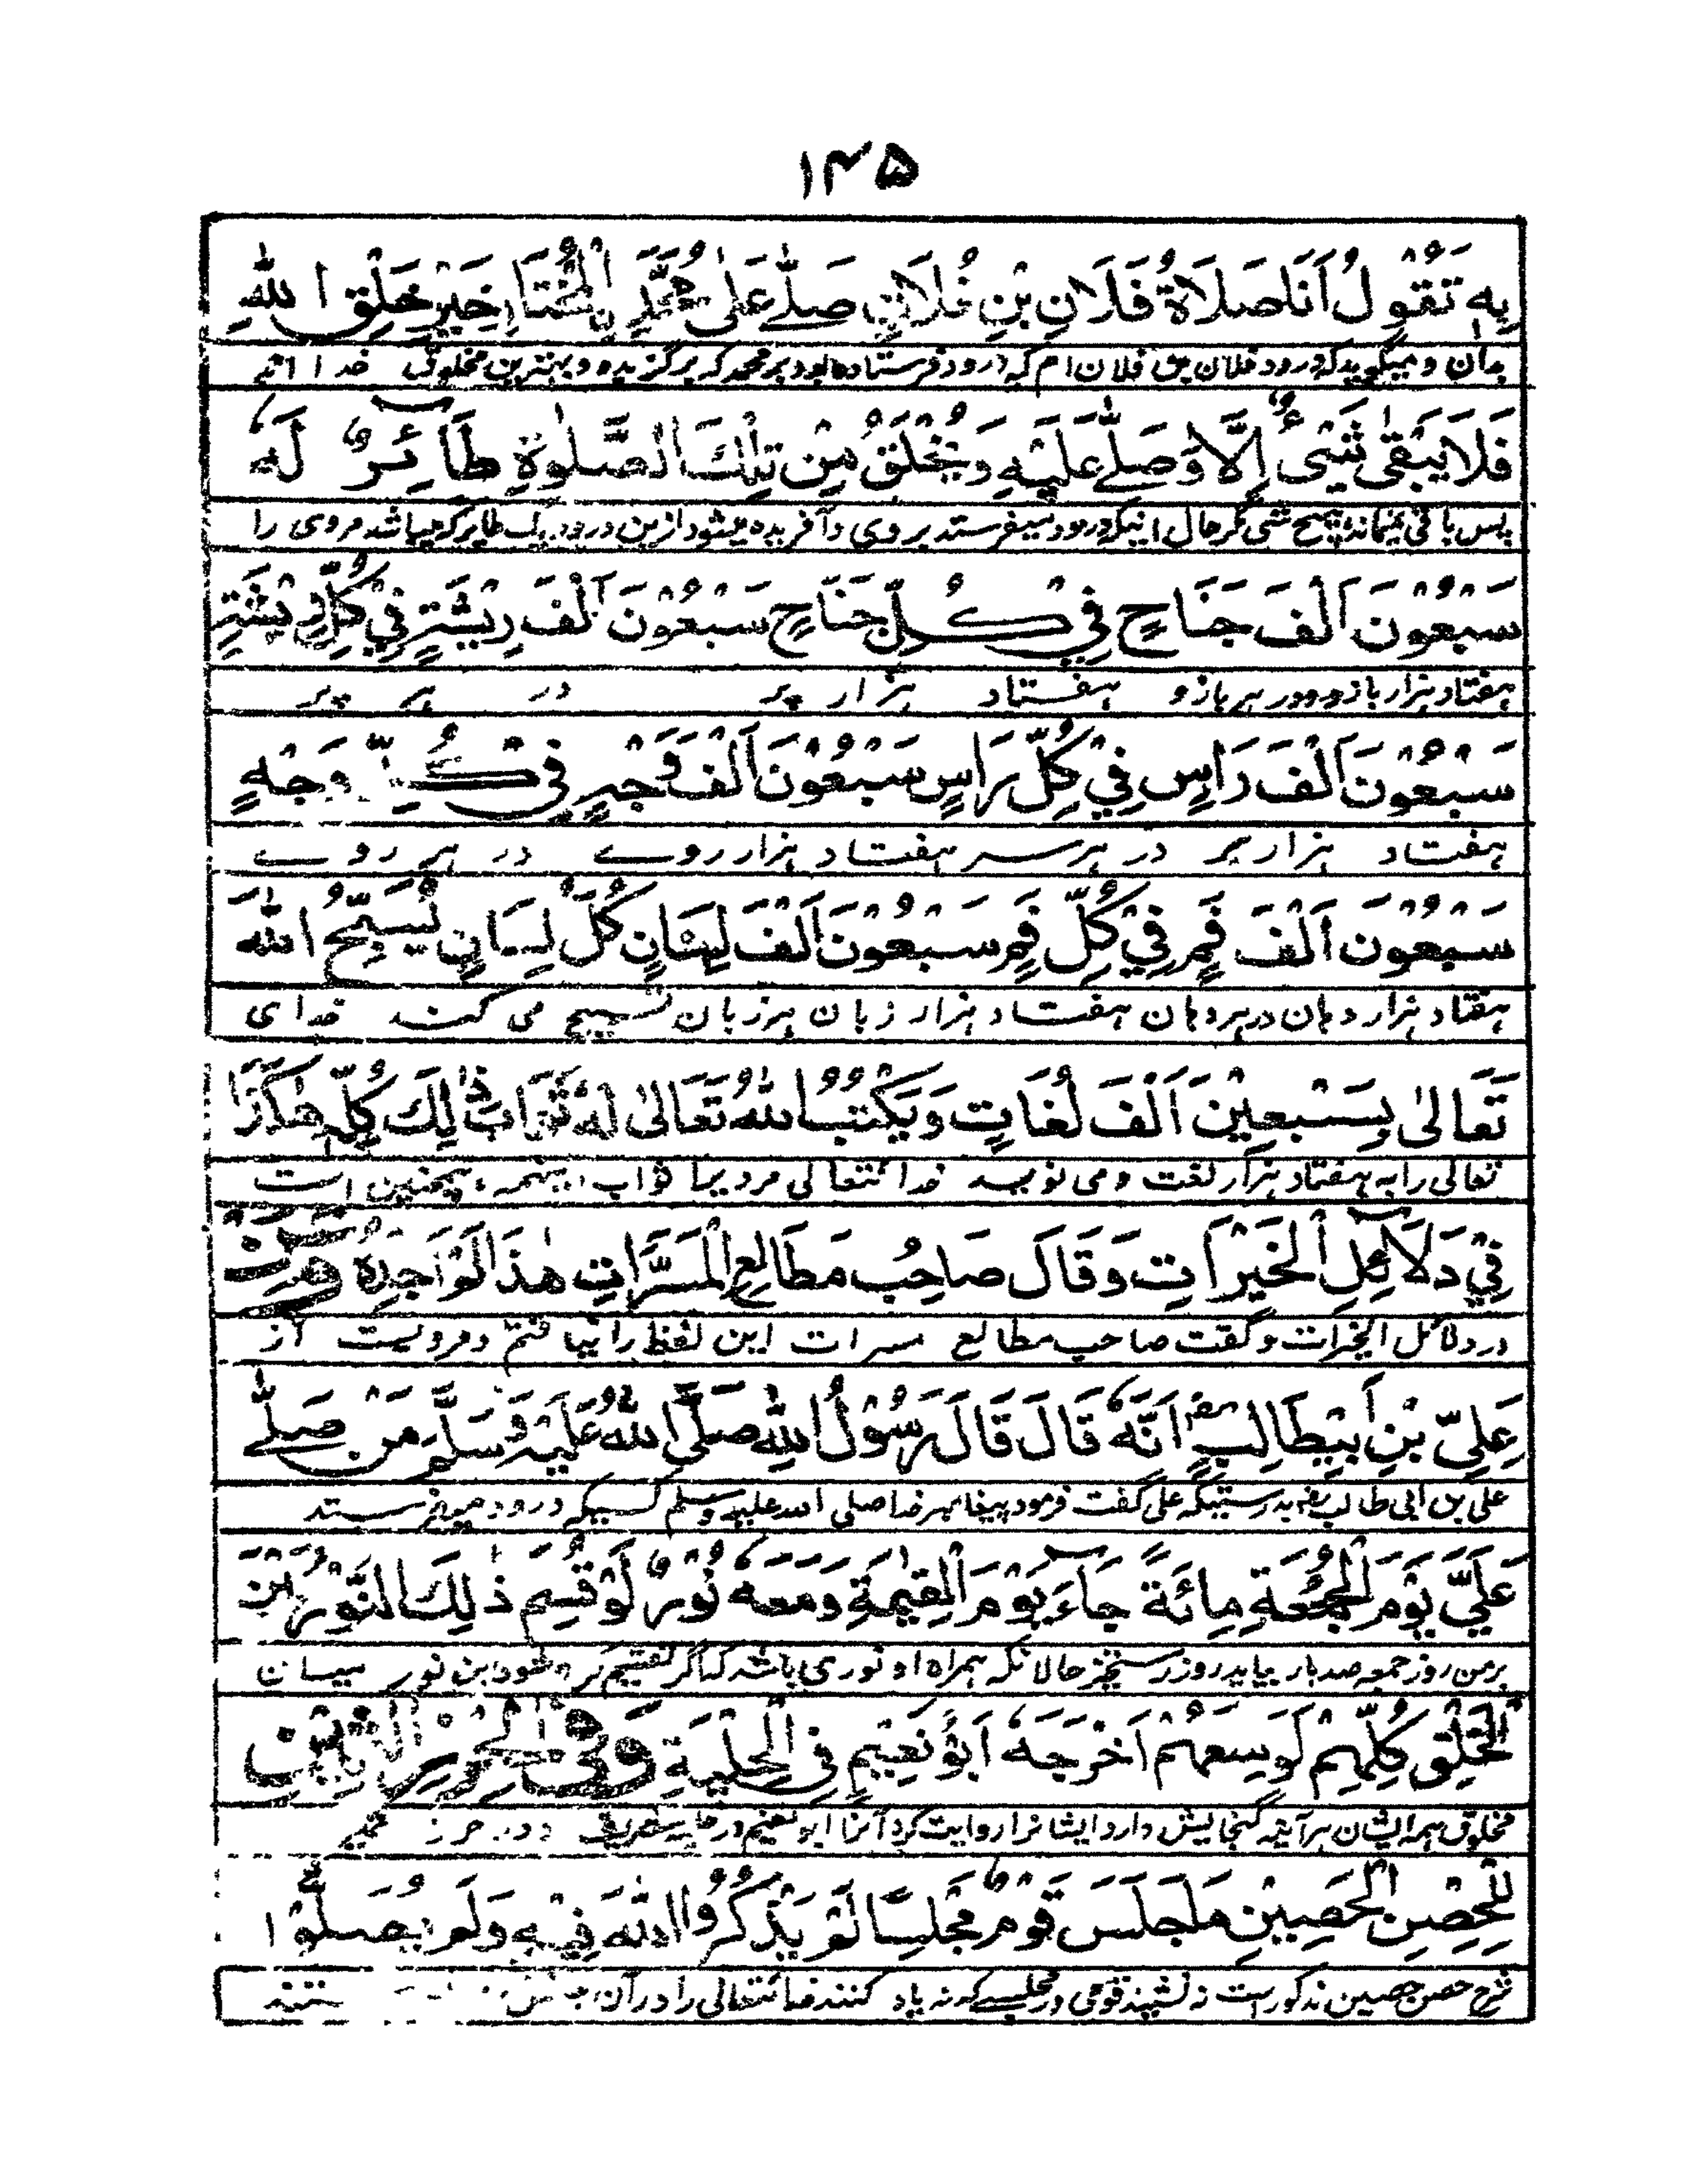 ۱۴۵
بِهٖ تَقُوْلُ اَنَا صَلَاةُ فَلَانِ بْنِ فُلَانٍ صَلّٰے عَلٰی مُحَمَّدِ الْمُخْتَارِ خَيْرِ خَلْقِ اللّٰهِ
بدان و میگوید که درود فلان بن فلان ام که درود فرستاده بود بر محمد که برگزیده و بهترین مخلوق خدا اند
فَلَا يَبْقٰی شَیْءٌ اِلَّا وَصَلّٰے عَلَيْهِ وَيُخْلَقُ مِنْ تِلْكَ الصَّلٰوةِ طَآئِرٌ لَهٗ
پس باقی نمیماند هیچ شی مگر حال اینکه درود میفرستد بر وی و آفریده میشود ازین درود یک طایر که میباشد مر وی را
سَبْعُوْنَ اَلْفَ جَنَاحٍ فِیْ كُلِّ جَنَاحٍ سَبْعُوْنَ اَلْفَ رِيْشَةٍ فِیْ كُلِّ رِيْشَةٍ
هفتاد هزار بازو و در هر بازو هفتاد هزار پر در هر پر
سَبْعُوْنَ اَلْفَ رَاسٍ فِیْ كُلِّ رَاسٍ سَبْعُوْنَ اَلْفَ وَجْهٍ فِیْ كُلِّ وَجْهٍ
هفتاد هزار سر در هر سر هفتاد هزار روے در هر روے
سَبْعُوْنَ اَلْفَ فَمٍ فِیْ كُلِّ فَمٍ سَبْعُوْنَ اَلْفَ لِسَانٍ كُلُّ لِسَانٍ يُسَبِّحُ اللّٰهَ
هفتاد هزار دهان در هر دهان هفتاد هزار زبان هر زبان تسبیح می کند خدای
تَعَالٰی بِسَبْعِيْنَ اَلْفَ لُغَاتٍ وَيَكْتُبُ اللّٰهُ تَعَالٰی لَهٗ ثَوَابَ ذٰلِكَ كُلِّهٖ هٰكَذَا
تعالی را به هفتاد هزار لغت و می نویسد خدائتعالی مر ویرا ثواب اینهمه همچنین است
فِیْ دَلَآئِلِ الْخَيْرَاتِ وَقَالَ صَاحِبُ مَطَالِعِ الْمَسَرَّاتِ هٰذَا لَمْ اَجِدْهُ
در دلائل الخیرات و گفت صاحب مطالع مسرات این لفظ را نیافتم و مرویست از
عَلِیِّ بْنِ اَبِیْطَالِبٍ اَنَّهٗ قَالَ قَالَ رَسُوْلُ اللّٰهِ صَلَّی اللّٰهُ عَلَيْهِ وَسَلَّمَ مَنْ صَلّٰے
علی بن ابی طالب بدرستیکه علی گفت فرمود پیغامبر خدا صلی الله علیه وسلم کسیکه درود میفرستد
عَلَیَّ يَوْمَ الْجُمُعَةِ مِائَةً جَآءَ يَوْمَ الْقِيٰمَةِ وَمَعَهٗ نُوْرٌ لَوْ قُسِمَ ذٰلِكَ النُّوْرُ بَيْنَ
بر من روز جمعه صد بار بیاید روز رستخیز حالانکه همراه او نوری باشد که اگر تقسیم کرده شود این نور میان
الْخَلْقِ كُلِّهِمْ لَوَسِعَهُمْ اَخْرَجَهٗ اَبُوْ نُعَيْمٍ فِی الْحِلْيَةِ وَفِی الْحِرْزِ الثَّمِيْنِ
مخلوق همه ایشان هر آینه گنجایش دارد ایشانرا روایت کرد آنرا ابو نعیم در
لِلْحِصْنِ الْحَصِيْنِ مَا جَلَسَ قَوْمٌ مَجْلِسًا لَمْ يَذْكُرُوا اللّٰهَ فِيْهِ وَلَمْ يُصَلُّوْا
شرح حصن حصین مذکور است نه نشینند قومی در مجلسے که نه یاد کنند خدائتعالی را در آن